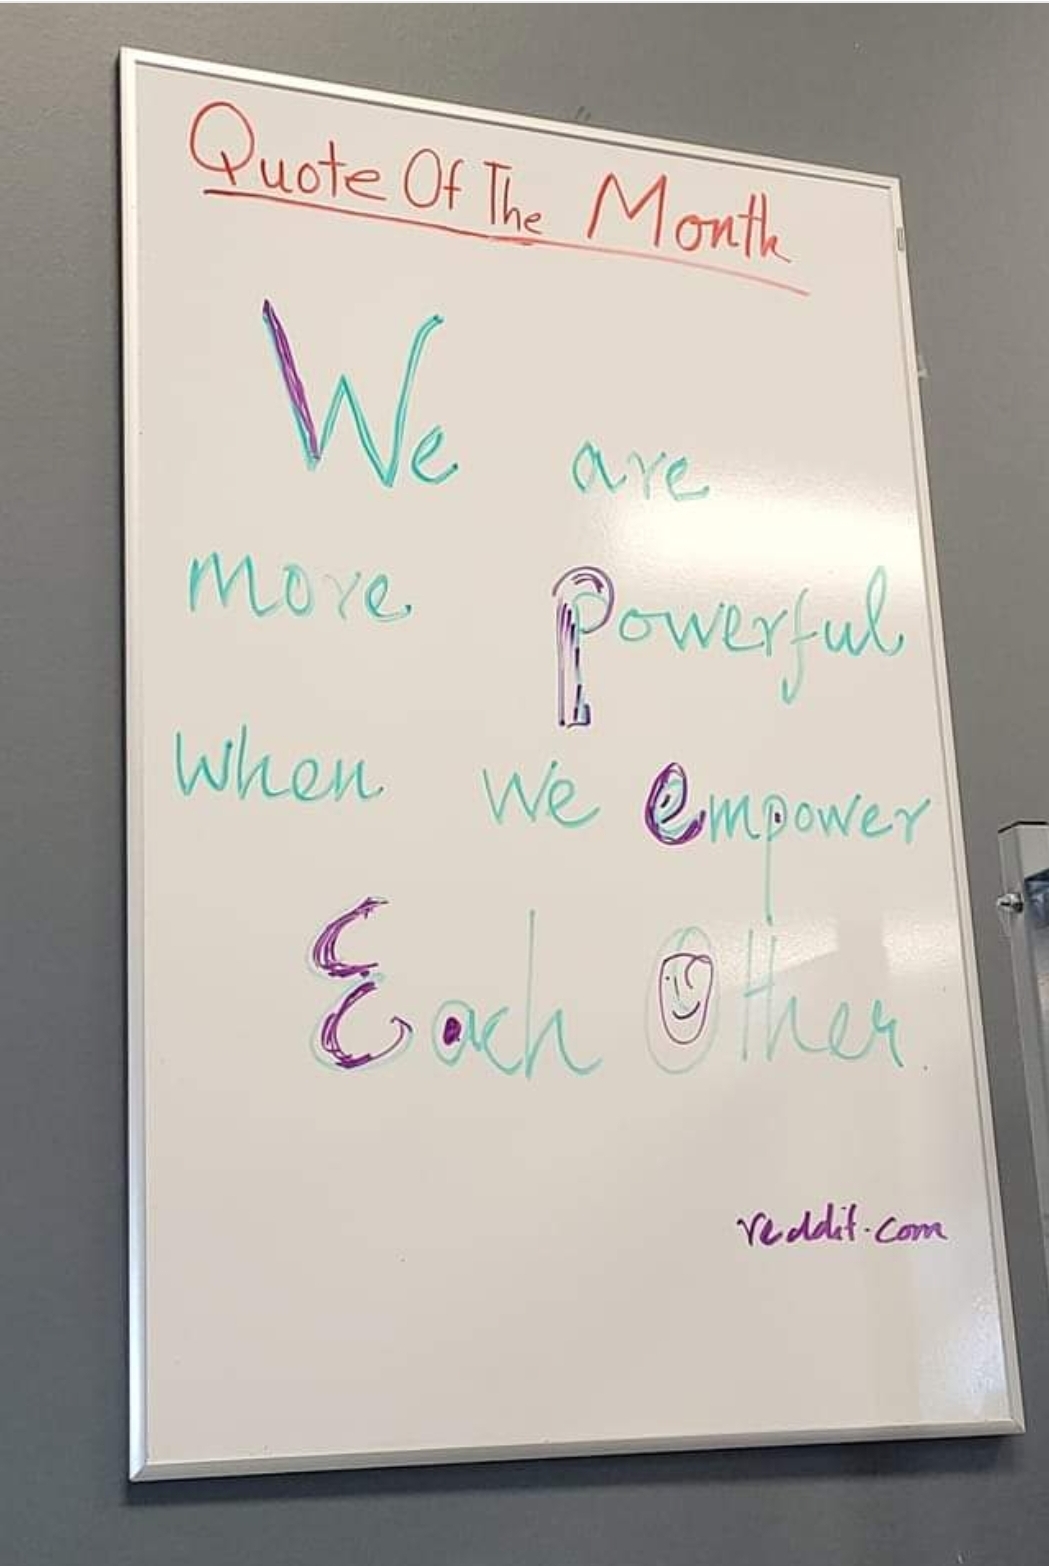 Quote Of The Month
We are
more Powerful
when we empower
Each Other
reddit.com